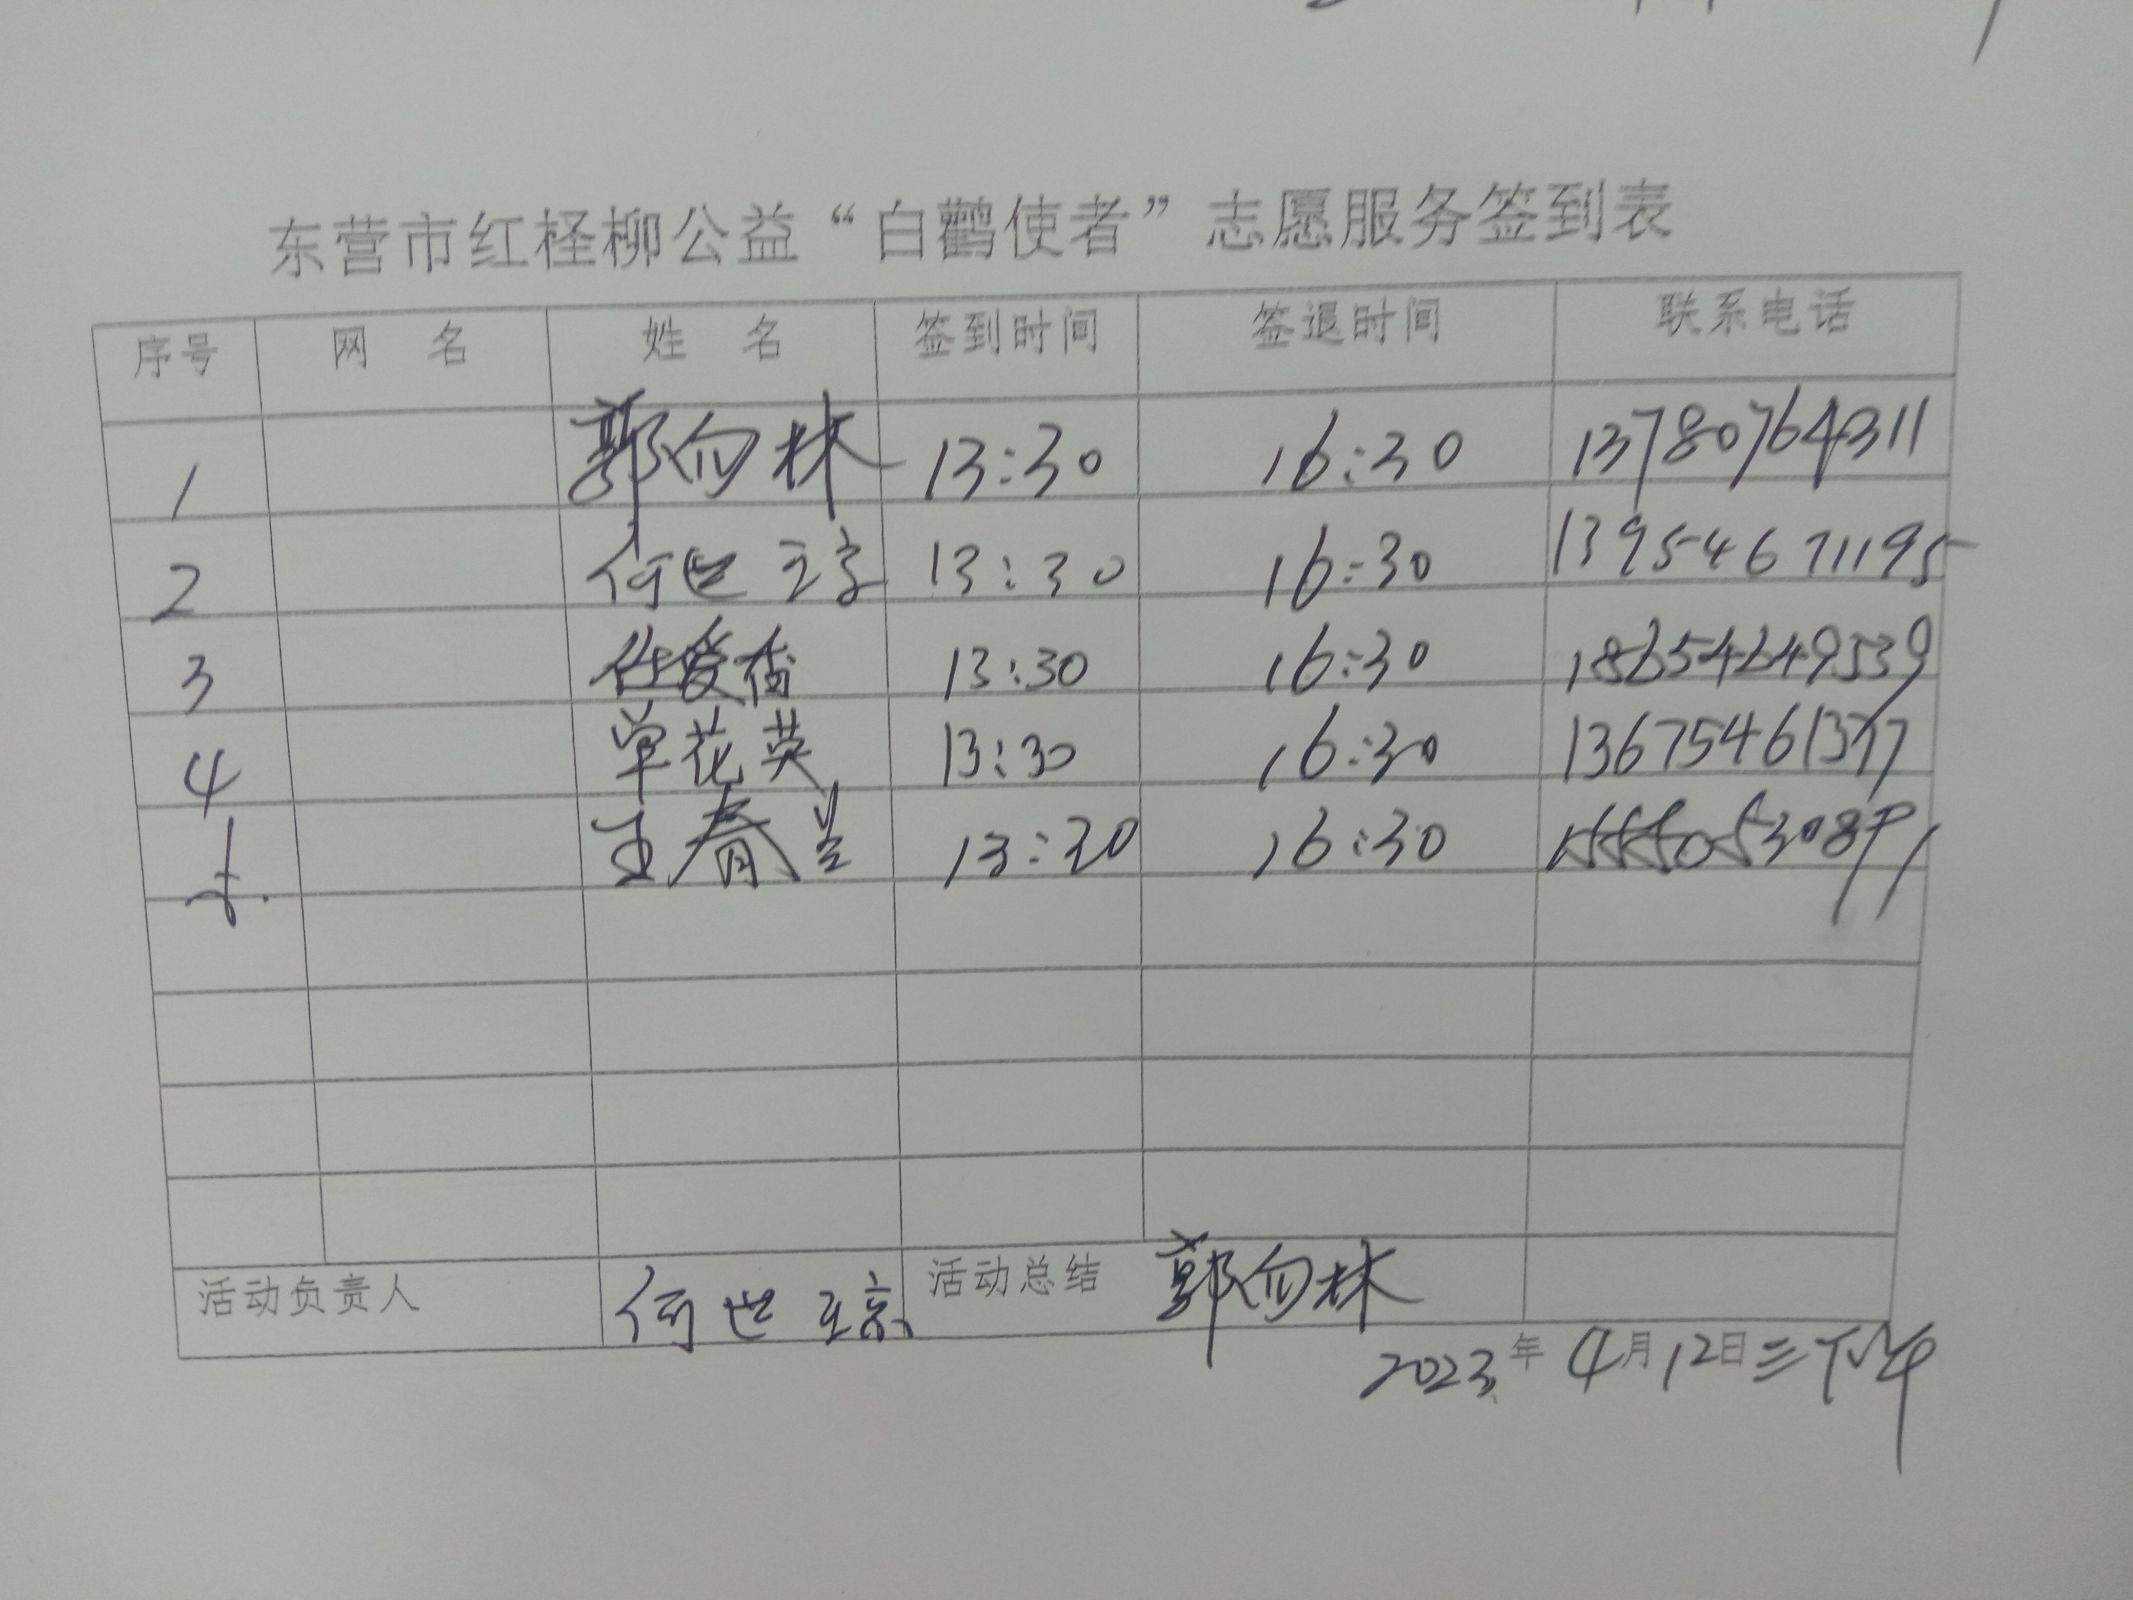 东营市红柽柳公益“白鹳使者”志愿服务签到表
序号 网 名 姓 名 签到时间 签退时间 联系电话
1 郭向林 13:30 16:30 13780764311
2 何世琼 13:30 16:30 13954671195
3 任爱香 13:30 16:30 18654649539
4 单花英 13:30 16:30 13675461377
5. 王春兰 13:30 16:30
活动负责人 何世琼 活动总结 郭向林
2023年4月12日三下午